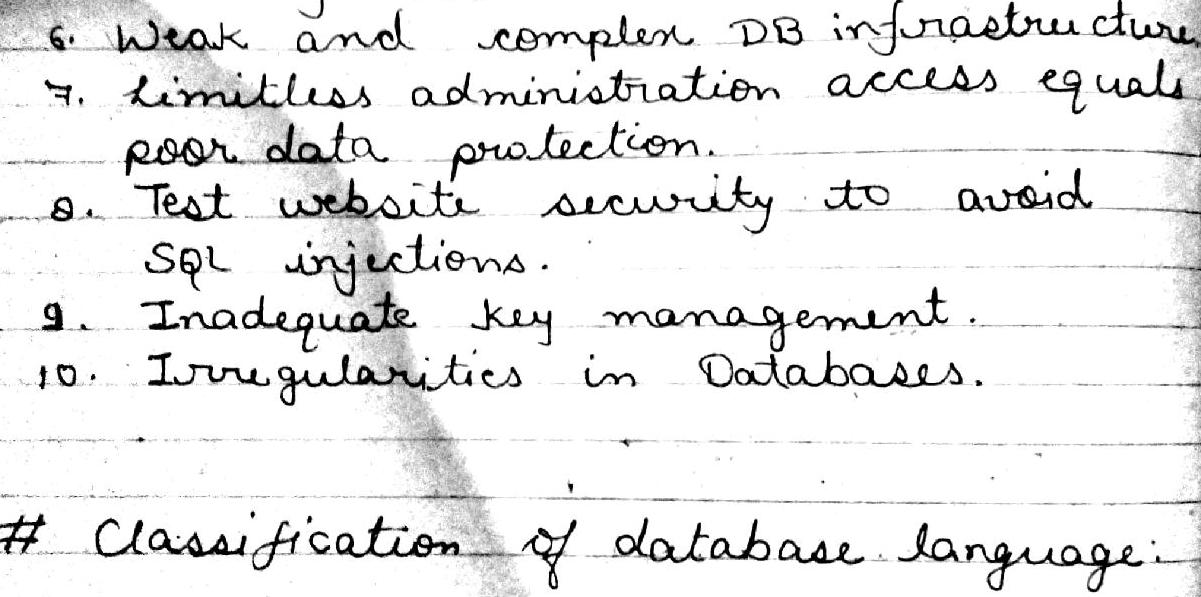 6. Weak and complex DB infrastructure
7. Limitless administration access equals
poor data protection.
8. Test website security to avoid
SQL injections.
9. Inadequate key management.
10. Irregularities in Databases.
# Classification of database language: